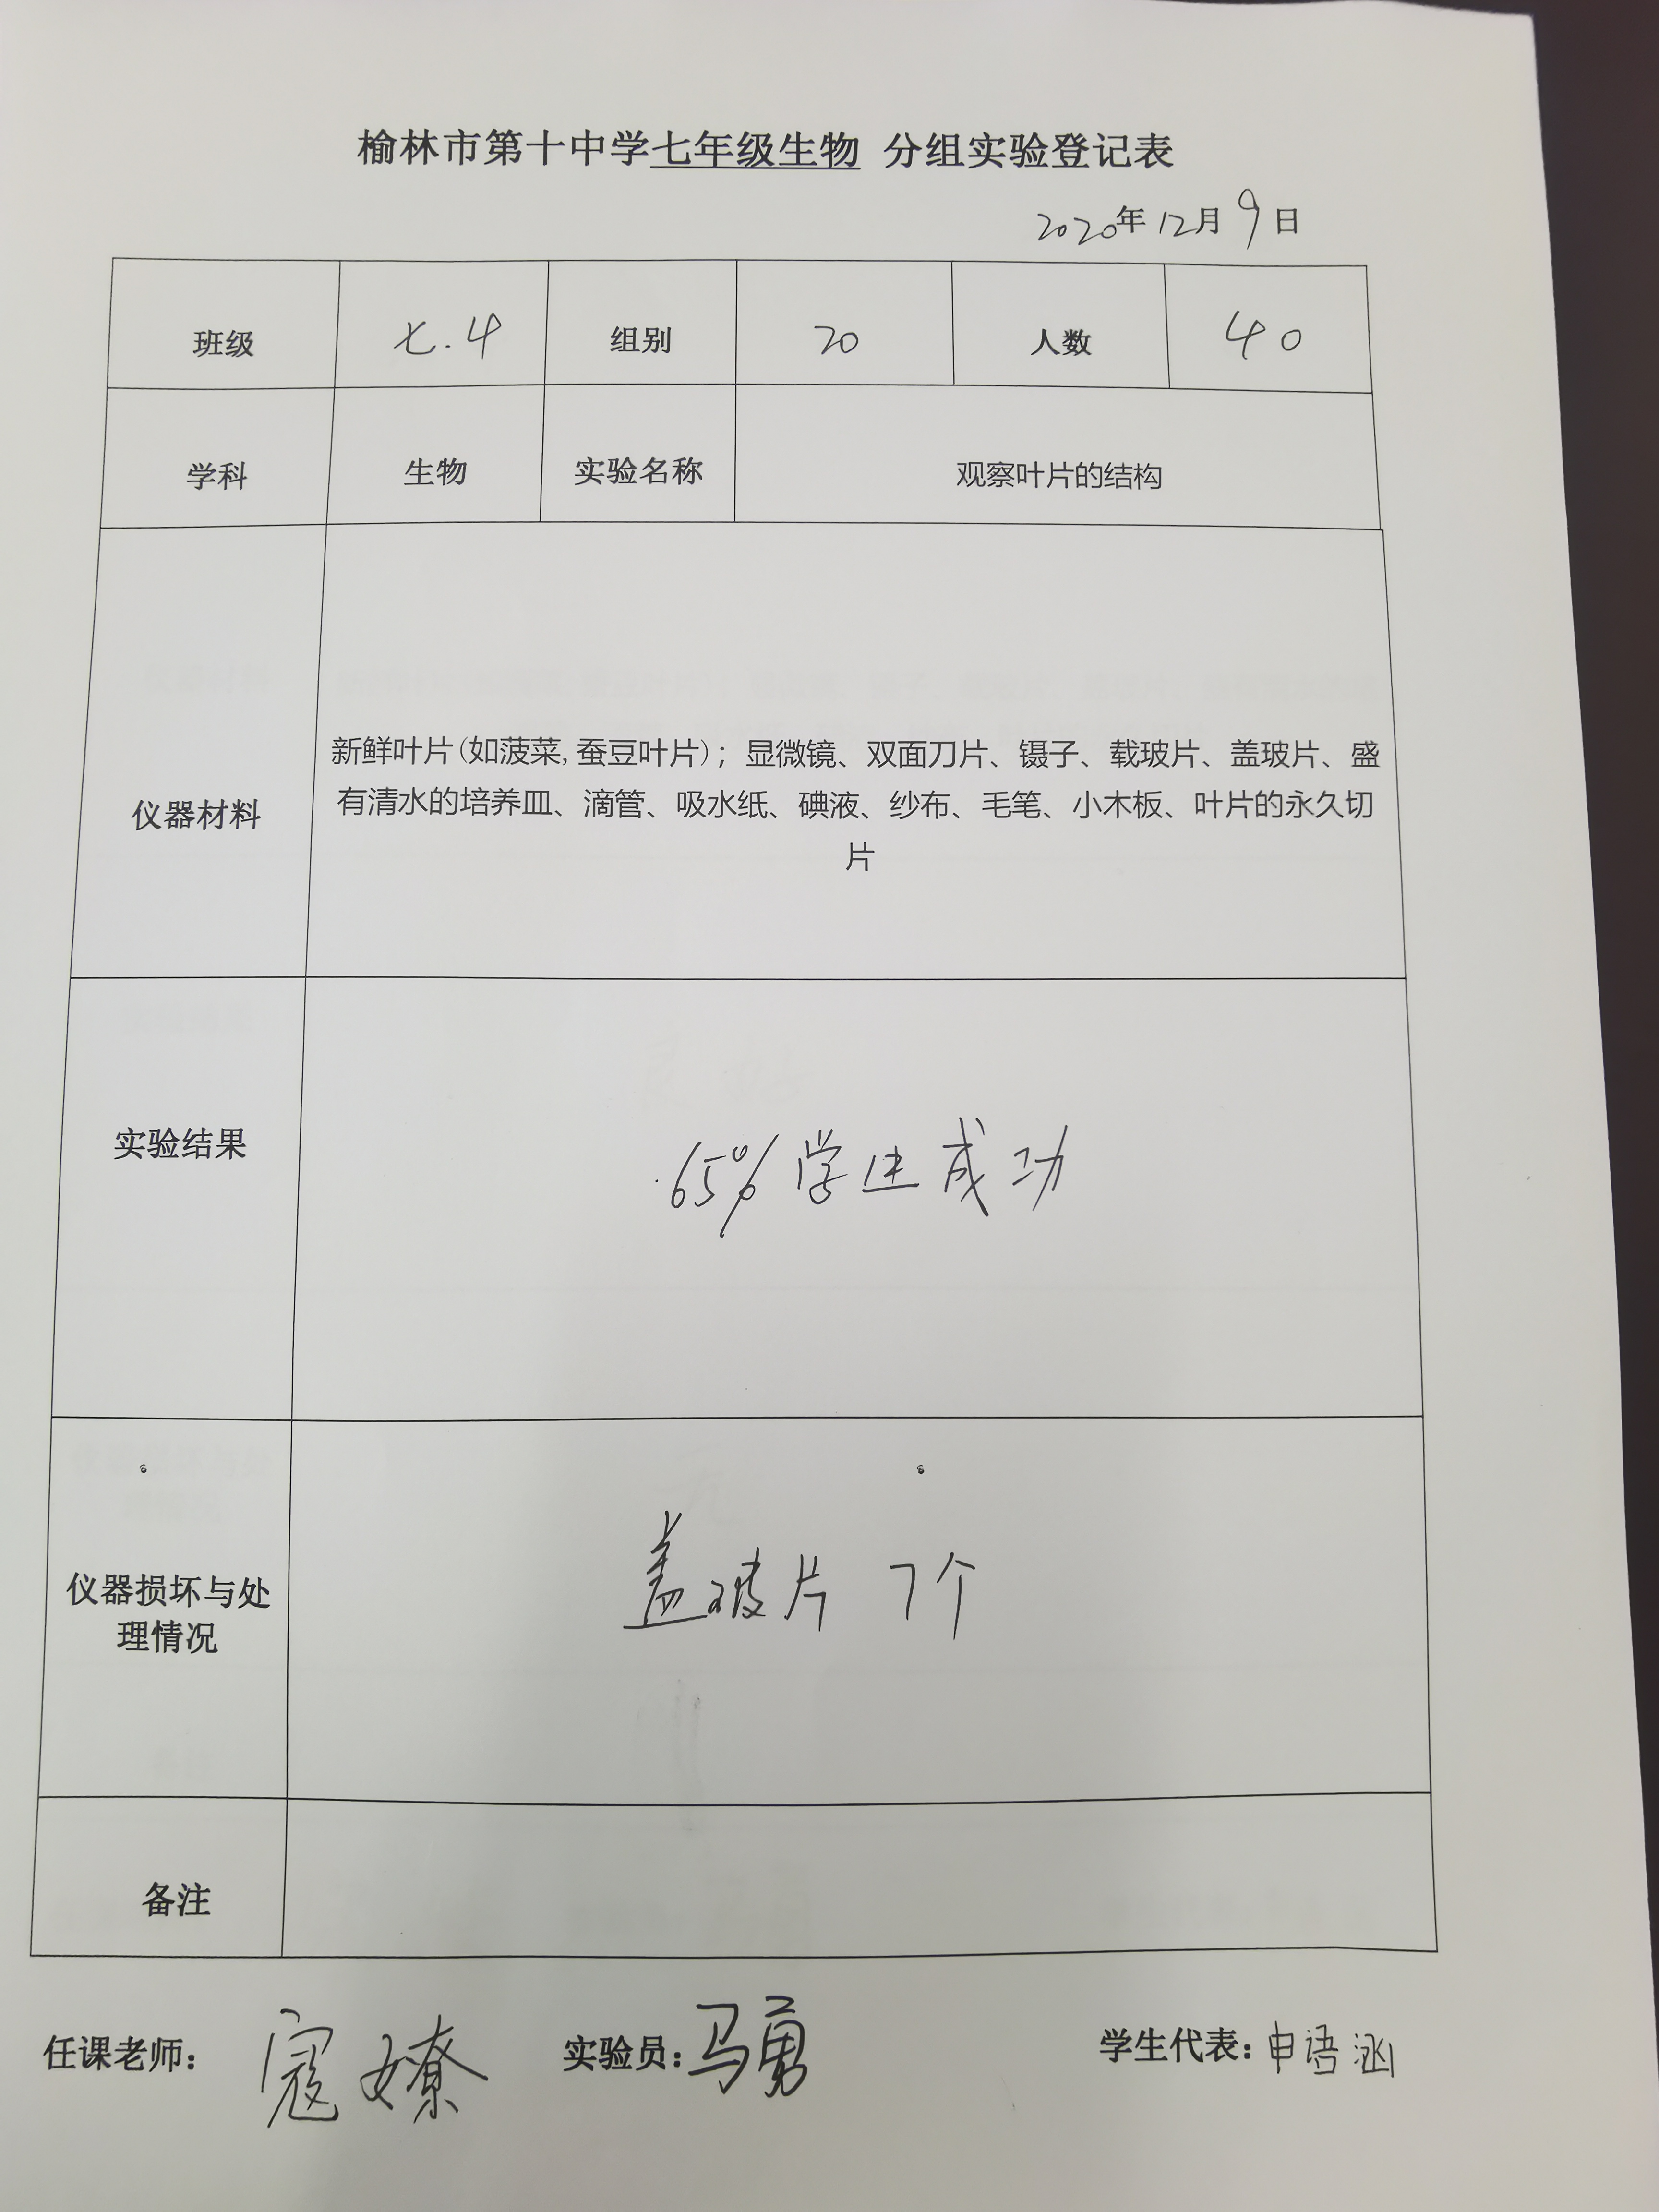 榆林市第十中学七年级生物 分组实验登记表
2020年12月9日
班级 七.4 组别 20 人数 40
学科 生物 实验名称 观察叶片的结构
仪器材料
新鲜叶片(如菠菜,蚕豆叶片);显微镜、双面刀片、镊子、载玻片、盖玻片、盛
有清水的培养皿、滴管、吸水纸、碘液、纱布、毛笔、小木板、叶片的永久切
片
实验结果 65%学生成功
仪器损坏与处
理情况
盖玻片 7个
备注
任课老师: 寇嫽 实验员: 马勇 学生代表: 申语涵